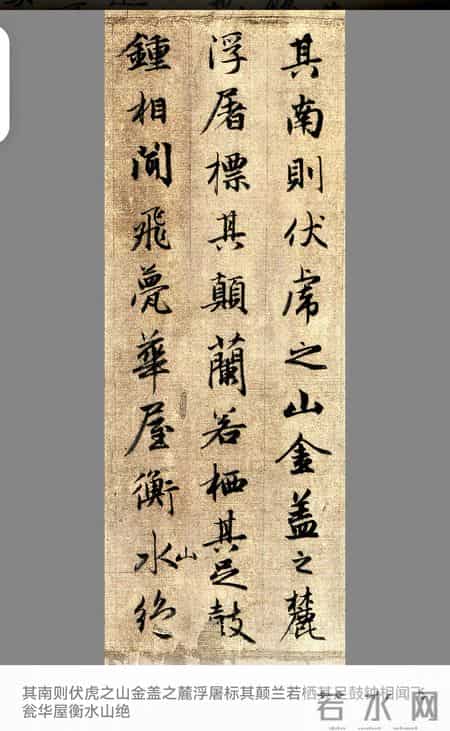 其南則伏虎之山金盖之麓
浮屠標其顛蘭若栖其足鼓
鍾相聞飛甍華屋衡水山絶
其南则伏虎之山金盖之麓浮屠标其颠兰若栖其足鼓钟相闻飞
甍华屋衡水山绝
若水网